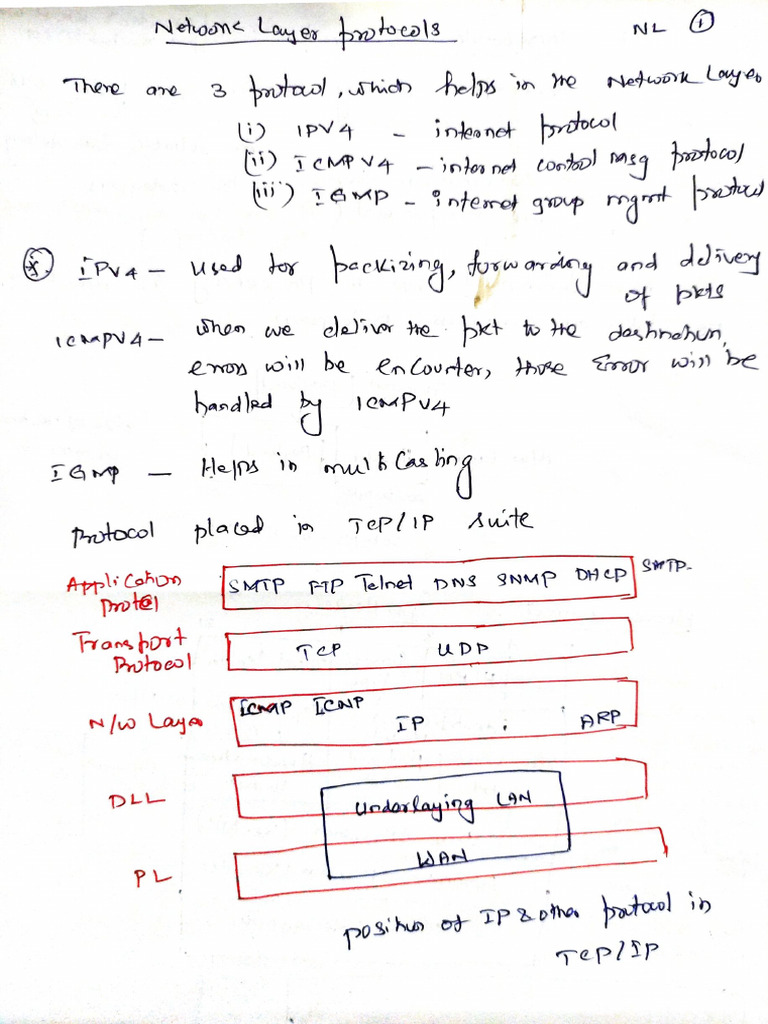 Network Layer protocols
NL ①
There are 3 protocol, which helps in the Network Layer
(i) IPV4 - internet protocol
(ii) ICMPV4 - internet control msg protocol
(iii) IGMP - internet group mgmt protocol
IPV4 - used for packizing, forwarding and delivery
of pkts
ICMPV4 - when we deliver the pkt to the destination,
errors will be encounter, those Error will be
handled by ICMPV4
IGMP - Helps in multicasting
Protocol placed in TCP/IP suite
Application
Protocol
SMTP FTP Telnet DNS SNMP DHCP SMTP.
Transport
Protocol
TCP UDP
N/W Layer
ICMP ICNP
IP ARP
DLL
Underlaying LAN
PL
WAN
position of IP & other protocol in
TCP/IP